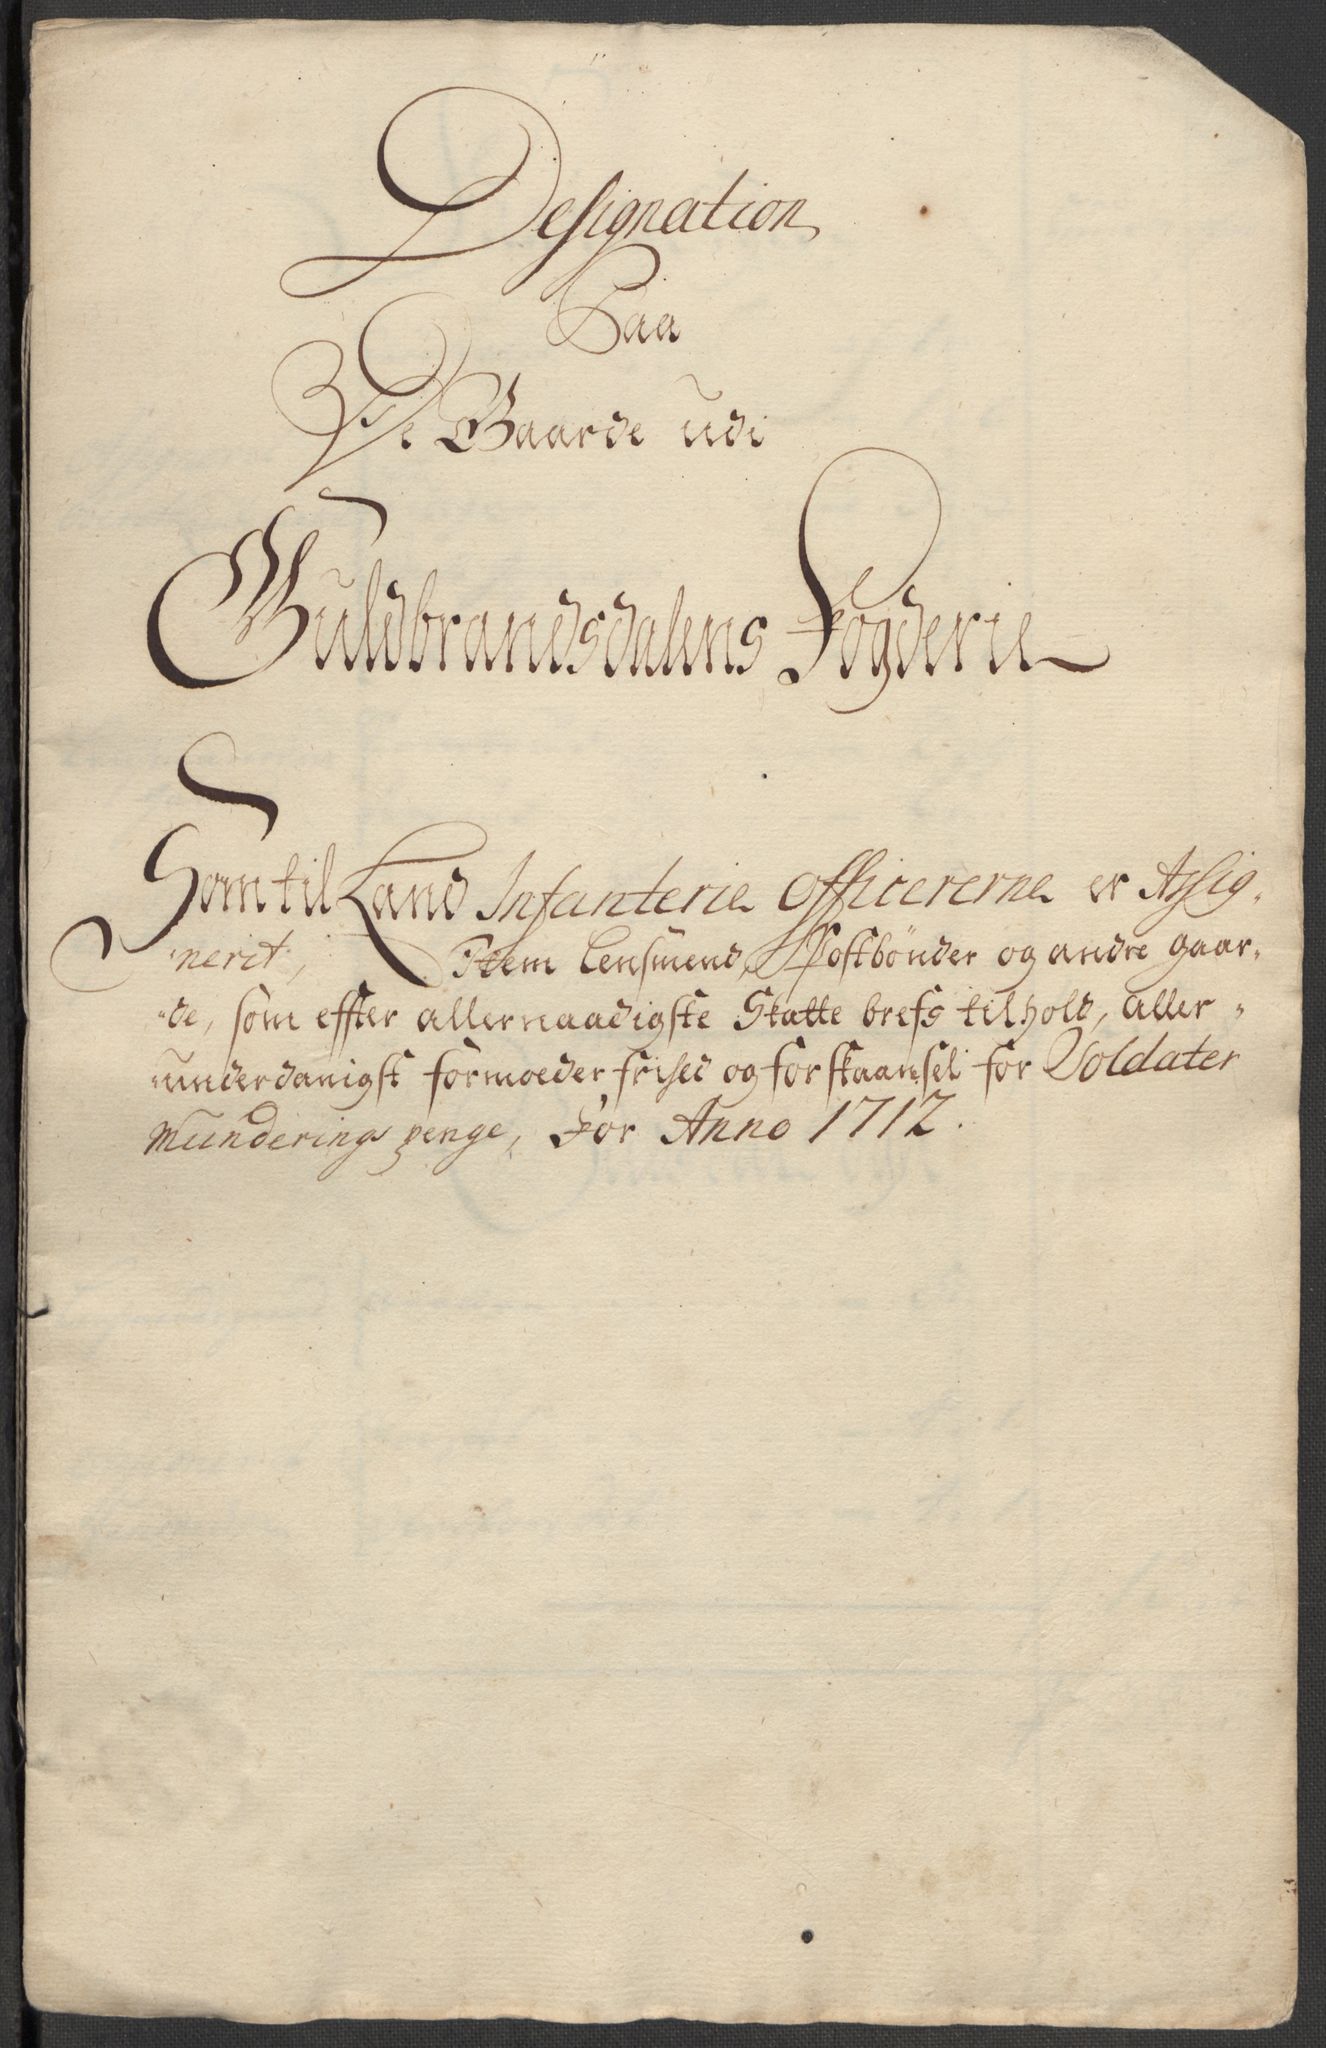 Designation
Paa
De Gaarde udi
Guldbrandsdalens Fogderie
Som til Land Infanterie Officererne er Assig-
nerit, Item Lensmend, Postbönder og andre gaar-
de, som effter allernaadigste Skatte brefs tilhold, aller-
underdanigst formoeder frihed og forskaansel for Soldater
Munderings penge, For Anno 1712.